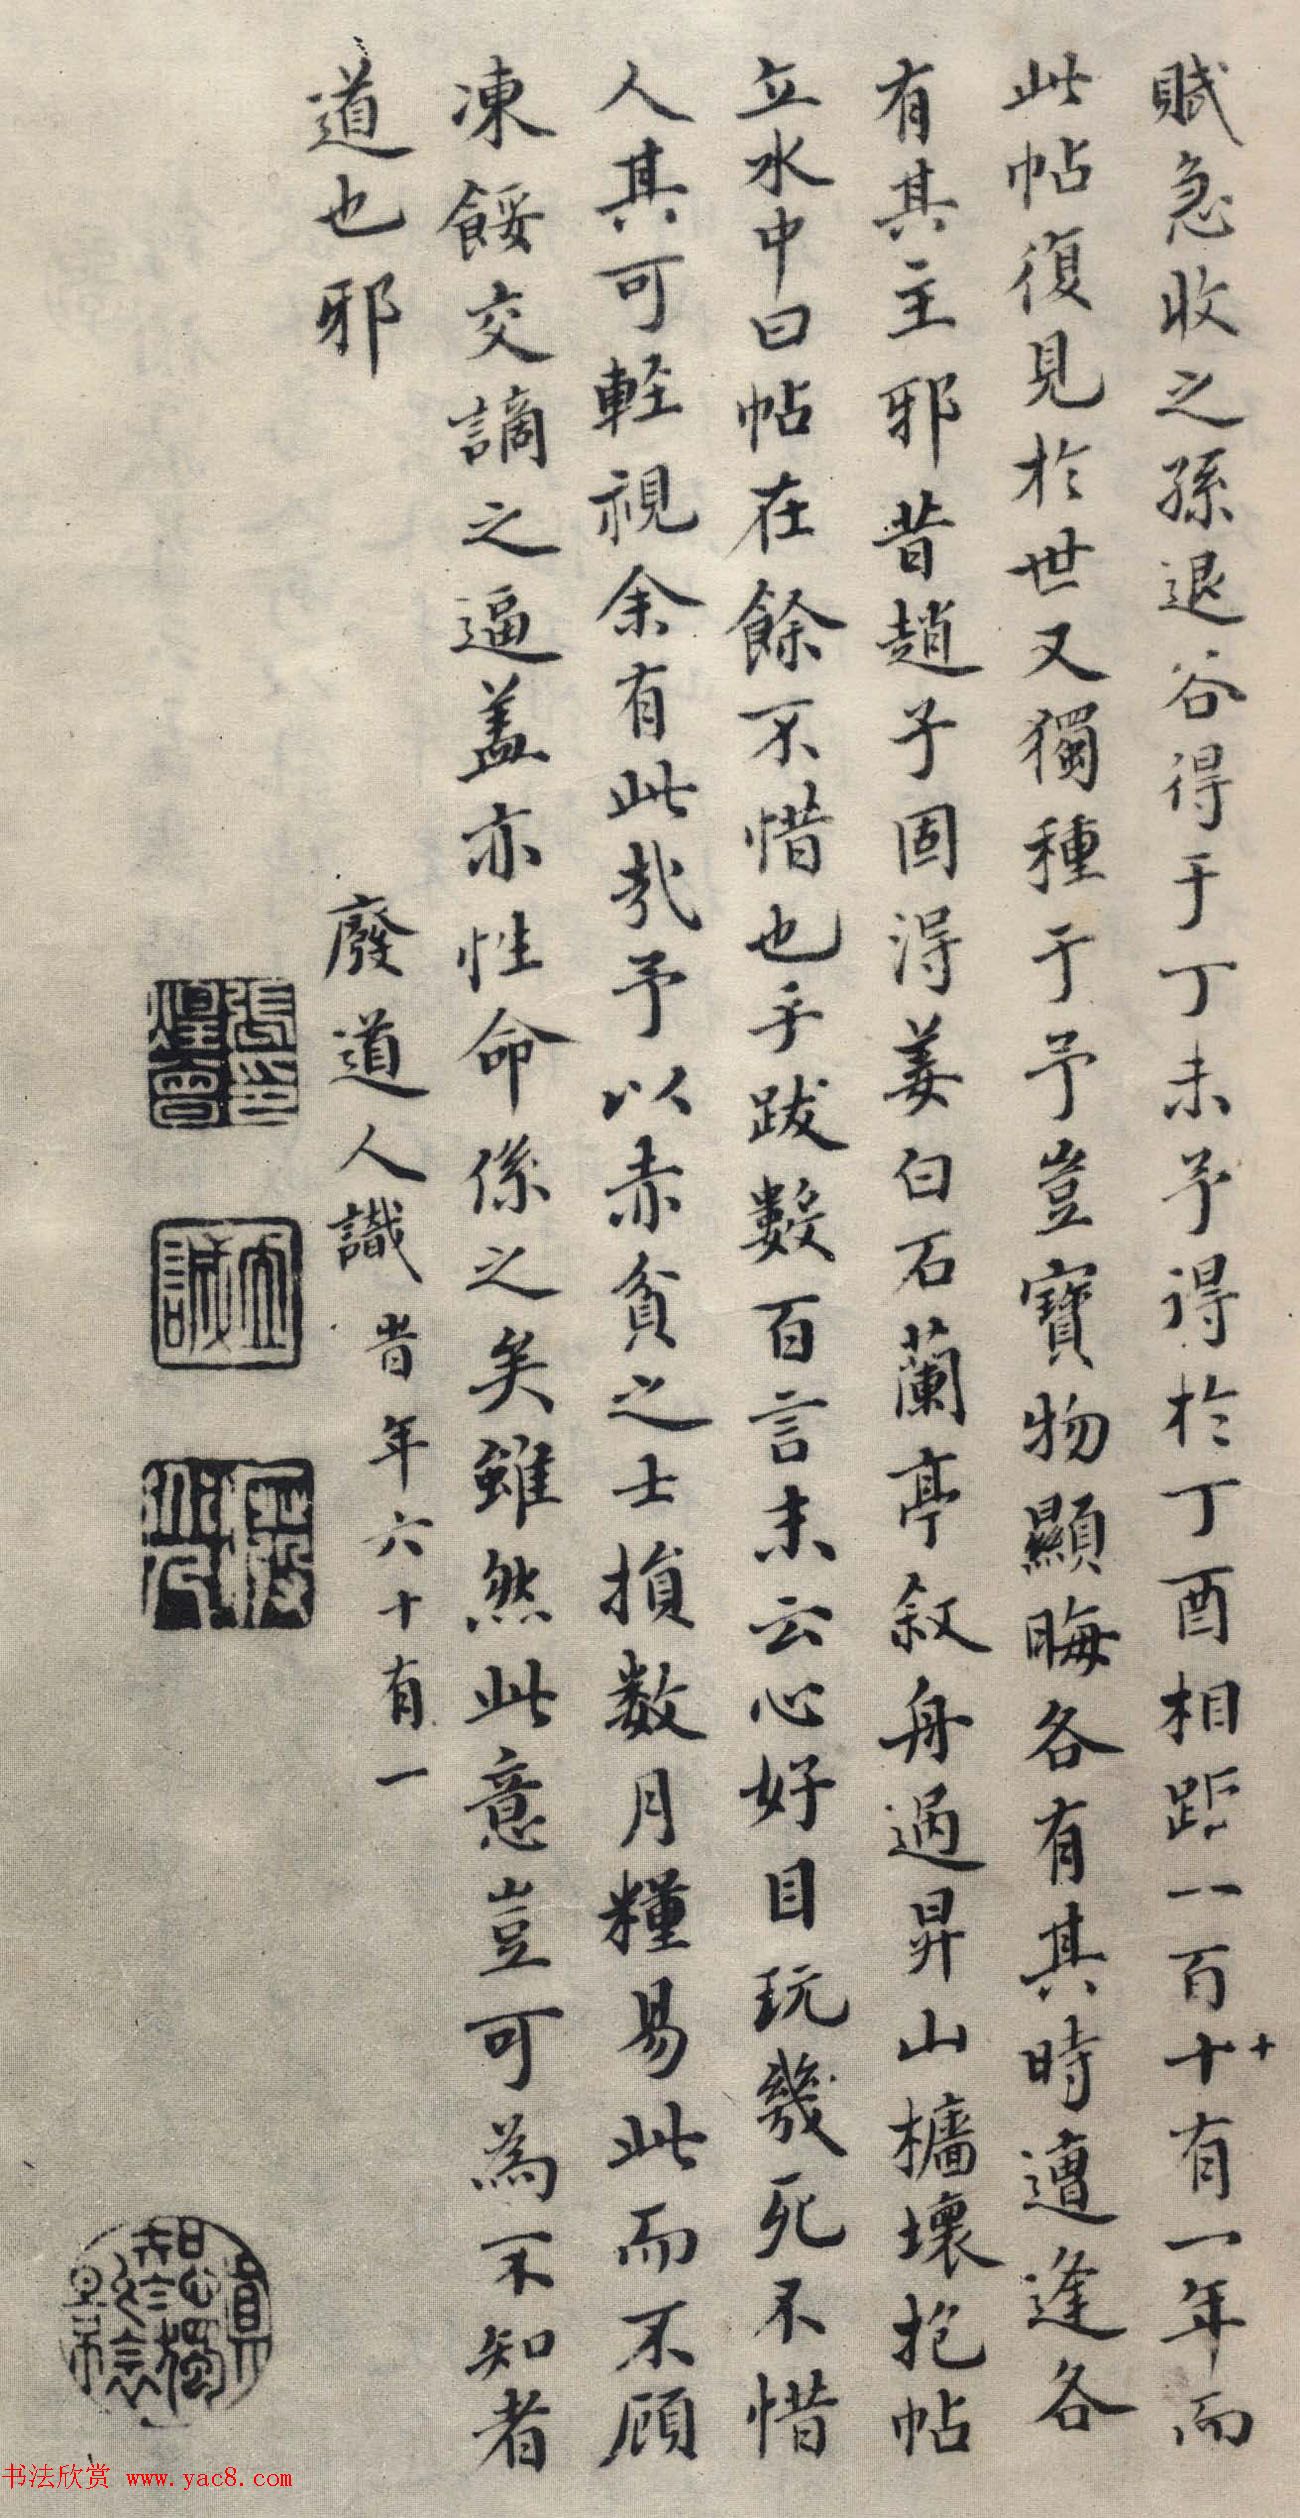 賦急收之孫退谷得于丁未予得於丁酉相距一百十十有一年而
此帖復見於世又獨種于予豈寶物顯晦各有其時遭逢各
有其主邪昔趙子固得姜白石蘭亭敘舟過昇山檣壞抱帖
立水中曰帖在餘不惜也手跋數百言末云心好目玩幾死不惜
人其可輕視余有此哉予以赤貧之士損数月糧易此而不顧
凍餒交謫之逼盖亦性命係之矣雖然此意豈可為不知者
道也邪
廢道人識 昔年六十有一
书法欣赏 www.yac8.com